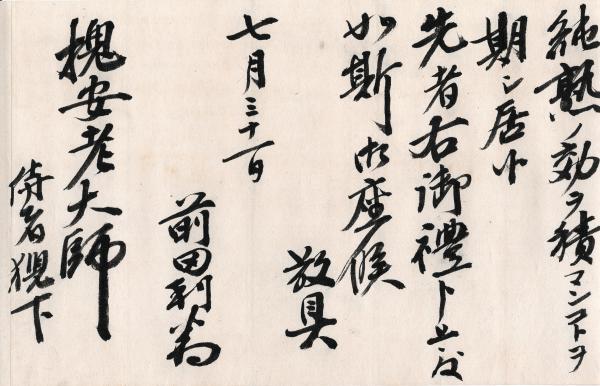 純熟ノ効ヲ積マンコトヲ
期シ居候
先者右御禮申上度
如斯御座候
敬具
七月三十一日
前田利為
槐安老大師
侍者猊下